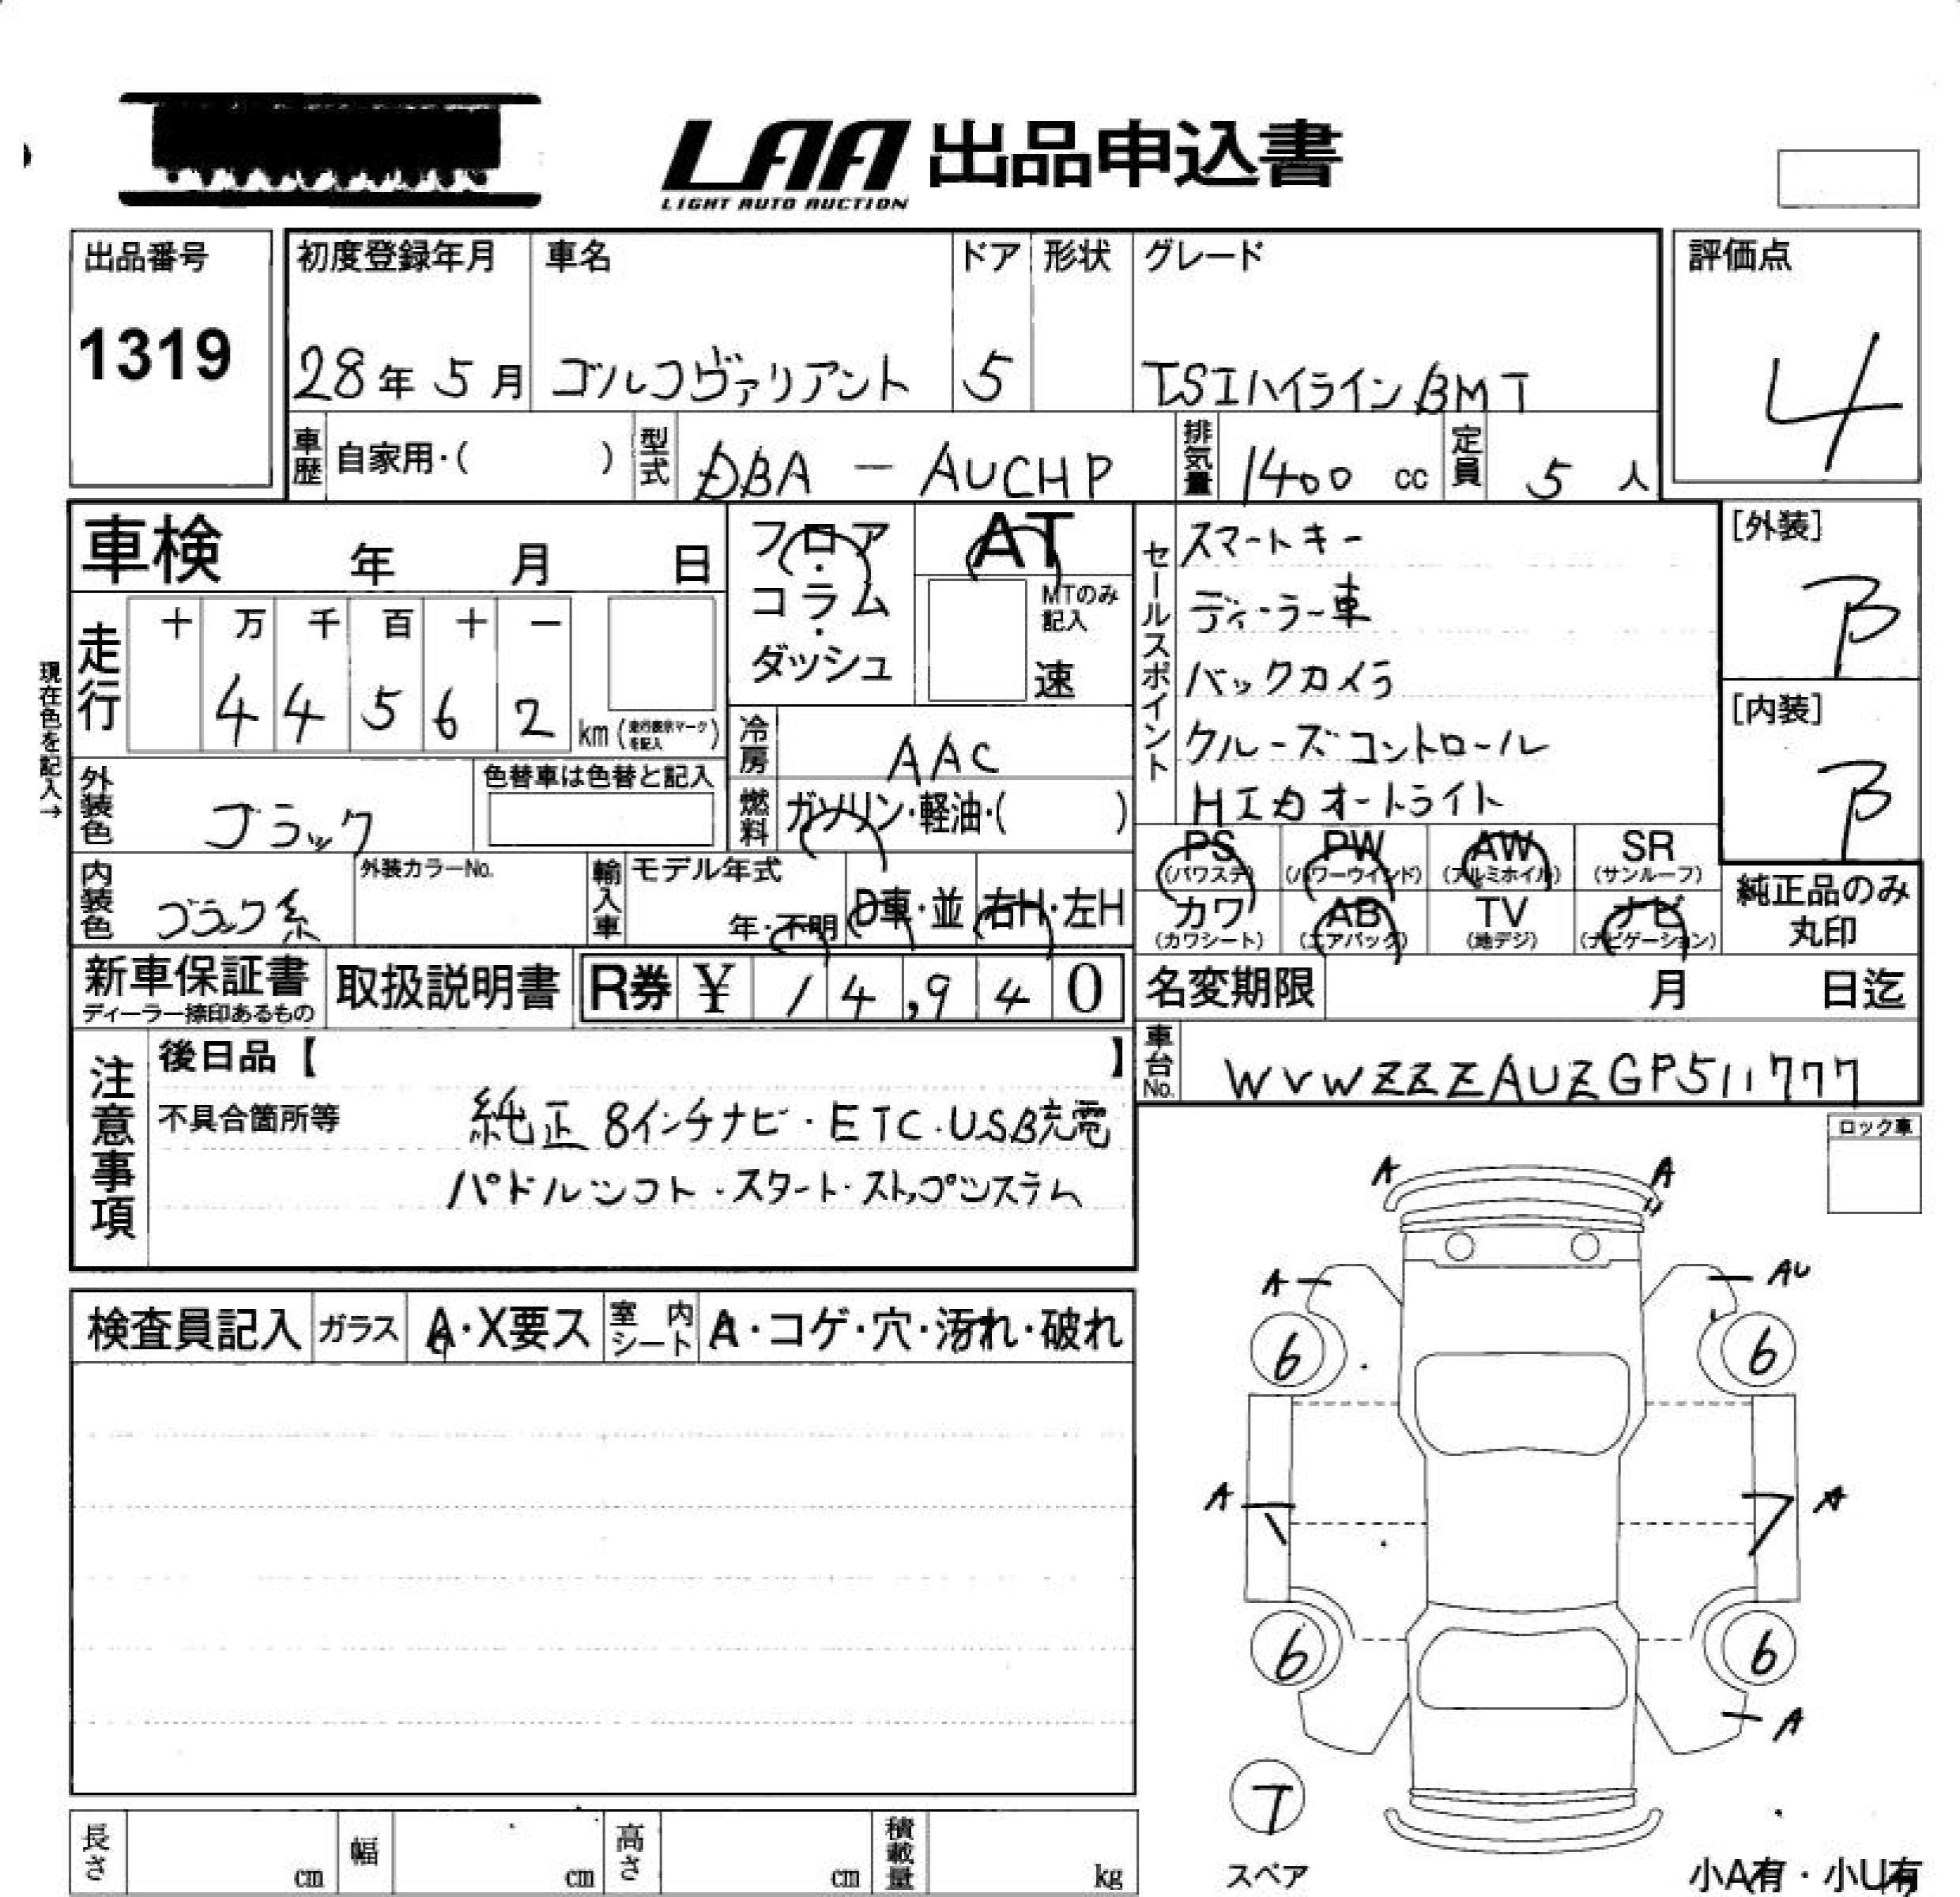 LAA 出品申込書
LIGHT AUTO AUCTION
出品番号
1319
初度登録年月
28年 5月
車名
ゴルフヴァリアント
ドア
5
形状
グレード
TSIハイラインBMT
評価点
4
車歴 自家用・( )
型式 DBA - AUCHP
排気量 1400 cc
定員 5 人
車検 年 月 日
フロア・コラム・ダッシュ
AT
MTのみ記入
速
現在色を記入→
走行
十 万 千 百 十 一
4 4 5 6 2 km (走行表示マークを記入)
冷房 AAC
燃料 ガソリン・軽油・( )
外装色 ブラック
色替車は色替と記入
内装色 ブラック系
外装カラーNo.
輸入車 モデル年式
年・不明
D車・並
右H・左H
セールスポイント
スマートキー
ディーラー車
バックカメラ
クルーズコントロール
HIDオートライト
[外装]
B
[内装]
B
PS (パワステ) PW (パワーウインド) AW (アルミホイル) SR (サンルーフ)
カワ (カワシート) AB (エアバッグ) TV (地デジ) ナビ (ナビゲーション)
純正品のみ丸印
新車保証書
ディーラー捺印あるもの
取扱説明書
R券 ¥ 14,940
名変期限 月 日迄
車台No. WVWZZZAUZGP511777
注意事項
後日品【 】
不具合箇所等
純正8インチナビ・ETC・USB充電
パドルシフト・スタート・ストップシステム
ロック車
検査員記入 ガラス A・X要ス 室内シート A・コゲ・穴・汚れ・破れ
A A
A AU
6 6
A A
6 6
A
7
スペア
小A有・小U有
長さ cm 幅 cm 高さ cm 積載量 kg